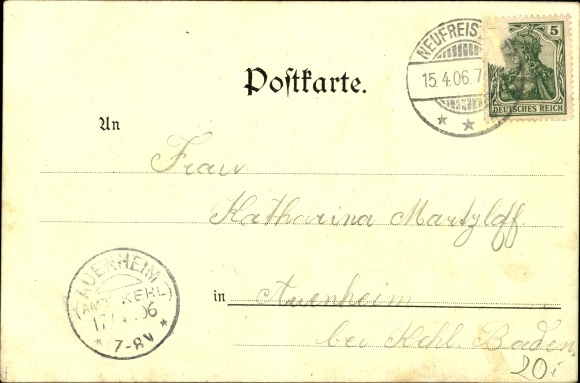 Postkarte.
NEUFREIST
15.4.06.7
5
DEUTSCHES REICH
An
Frau
Katharina Martzloff
in Auenheim
bei Kehl. Baden,
AUENHEIM
(AMT KEHL)
17.4.06
7-8V
20.